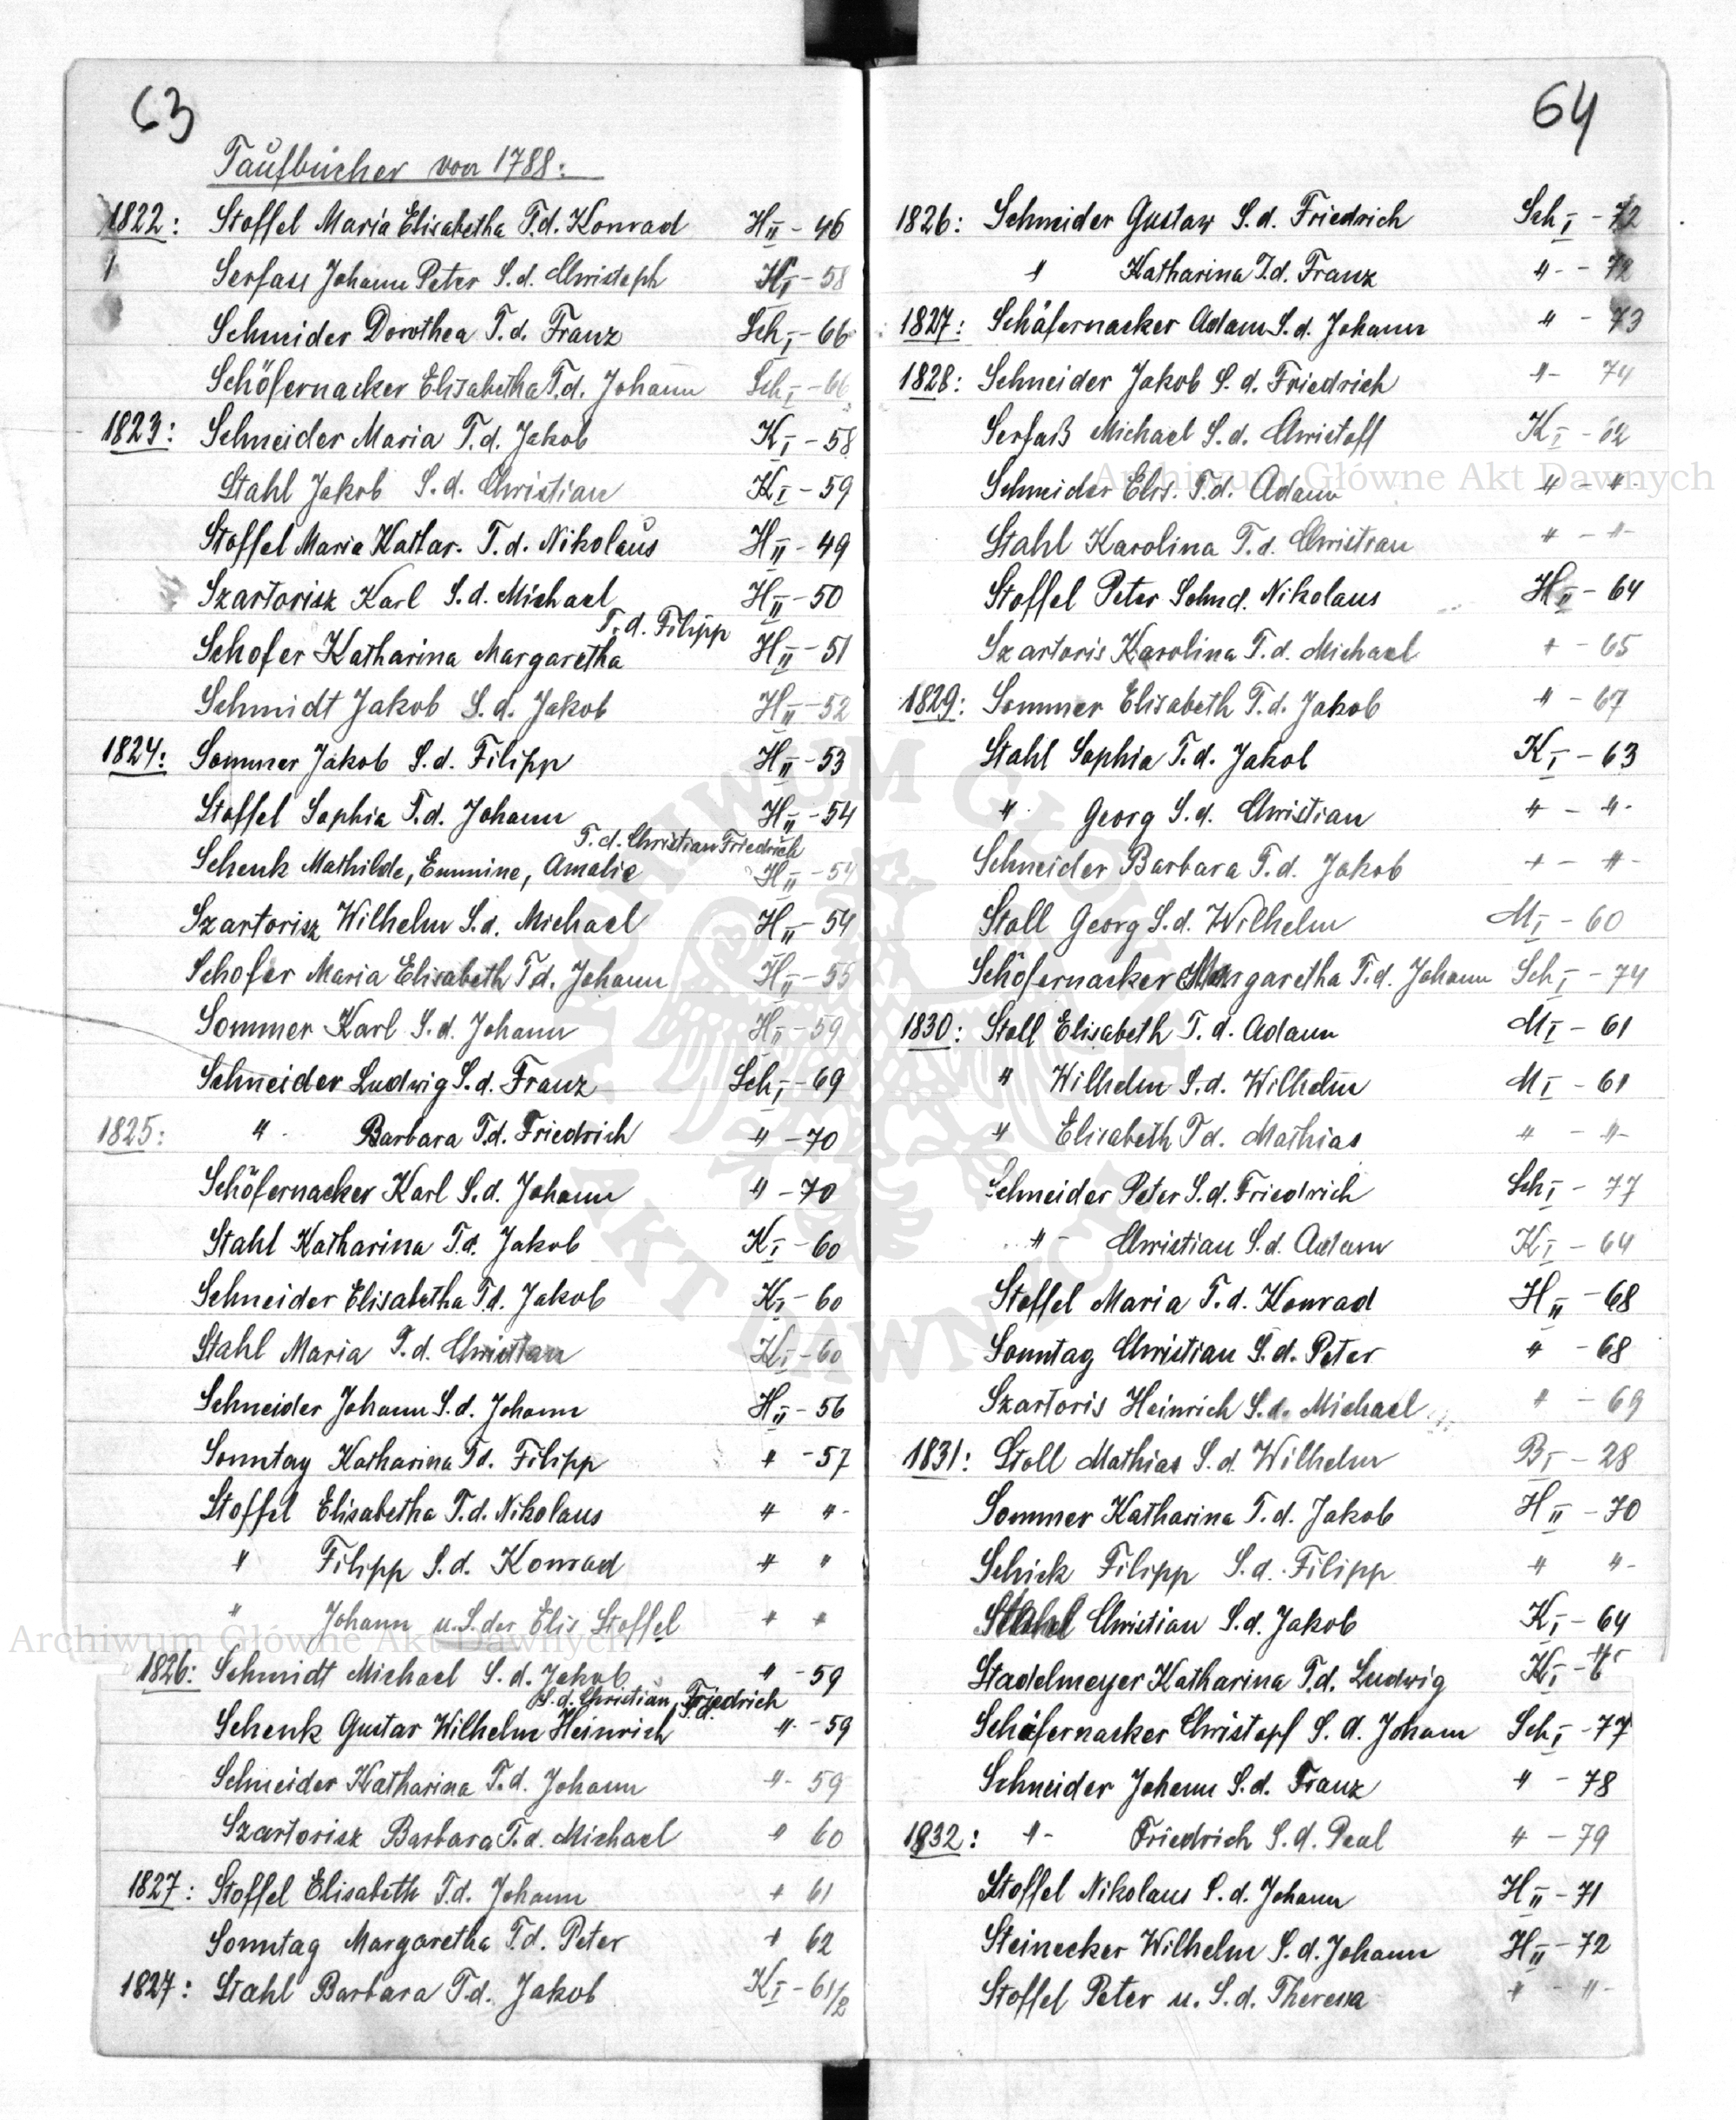 63
Taufbücher von 1788:
1822: Stoffel Maria Elisabetha T.d. Konrad H II - 46
Serfass Johann Peter S.d. Christoph H I - 58
Schneider Dorothea T.d. Franz Sch I - 66
Schöfernacker Elisabetha T.d. Johann Sch I - 66
1823: Schneider Maria T.d. Jakob K I - 58
Stahl Jakob S.d. Christian K I - 59
Stoffel Maria Kathar. T.d. Nikolaus H II - 49
Szartorisz Karl S.d. Michael H II - 50
T.d. Filipp
Schofer Katharina Margaretha H II - 51
Schmidt Jakob S.d. Jakob H II - 52
1824: Sommer Jakob S.d. Filipp H II - 53
Stoffel Sophia T.d. Johann H II - 54
T.d. Christian Friedrich
Schenk Mathilde, Emmine, Amalie H II - 54
Szartorisz Wilhelm S.d. Michael H II - 54
Schofer Maria Elisabeth T.d. Johann H II - 55
Sommer Karl S.d. Johann H II - 59
Schneider Ludwig S.d. Franz Sch I - 69
1825: " Barbara T.d. Friedrich " - 70
Schöfernacker Karl S.d. Johann " - 70
Stahl Katharina T.d. Jakob K I - 60
Schneider Elisabetha T.d. Jakob K I - 60
Stahl Maria T.d. Christian K I - 60
Schneider Johann S.d. Johann H II - 56
Sonntag Katharina T.d. Filipp " - 57
Stoffel Elisabetha T.d. Nikolaus " " -
" Filipp S.d. Konrad " "
" Johann u.S. der Elis Stoffel " "
1826: Schmidt Michael S.d. Jakob " - 59
S.d. Christian, Friedrich
Schenk Gustav Wilhelm Heinrich " - 59
Schneider Katharina T.d. Johann " - 59
Szartorisz Barbara T.d. Michael " 60
1827: Stoffel Elisabeth T.d. Johann " 61
Sonntag Margaretha T.d. Peter " 62
1827: Stahl Barbara T.d. Jakob K I - 61/2
64
1826: Schneider Gustaw S.d. Friedrich Sch I - 72
" Katharina T.d. Franz " - 72
1827: Schäfernacker Adam S.d. Johann " - 73
1828: Schneider Jakob S.d. Friedrich " - 74
Serfaß Michael S.d. Christoff K I - 62
Schneider Elis. T.d. Adam " - " -
Stahl Karolina T.d. Christian " - " -
Stoffel Peter Sohn d. Nikolaus H II - 64
Szartoris Karolina T.d. Michael " - 65
1829: Sommer Elisabeth T.d. Jakob " - 67
Stahl Sophia T.d. Jakob K I - 63
" Georg S.d. Christian " - " -
Schneider Barbara T.d. Jakob " - " -
Stoll Georg S.d. Wilhelm M I - 60
Schöfernacker Margaretha T.d. Johann Sch I - 74
1830: Stoll Elisabeth T.d. Adam M I - 61
" Wilhelm S.d. Wilhelm M I - 61
" Elisabeth T.d. Mathias " - " -
Schneider Peter S.d. Friedrich Sch I - 77
" Christian S.d. Adam K I - 64
Stoffel Maria T.d. Konrad H II - 68
Sonntag Christian S.d. Peter " - 68
Szartoris Heinrich S.d. Michael " - 69
1831: Stoll Mathias S.d. Wilhelm B I - 28
Sommer Katharina T.d. Jakob H II - 70
Schick Filipp S.d. Filipp " " -
Stahl Christian S.d. Jakob K I - 64
Stadelmeyer Katharina T.d. Ludwig K I -
Schäfernacker Christopf S.d. Johann Sch I - 77
Schneider Johann S.d. Franz " - 78
1832: " - Friedrich S.d. Paul " - 79
Stoffel Nikolaus S.d. Johann H II - 71
Steinecker Wilhelm S.d. Johann H II - 72
Stoffel Peter u. S.d. Theresa " - " -
Archiwum Główne Akt Dawnych
Archiwum Główne Akt Dawnych
ARCHIWUM GŁÓWNE AKT DAWNYCH